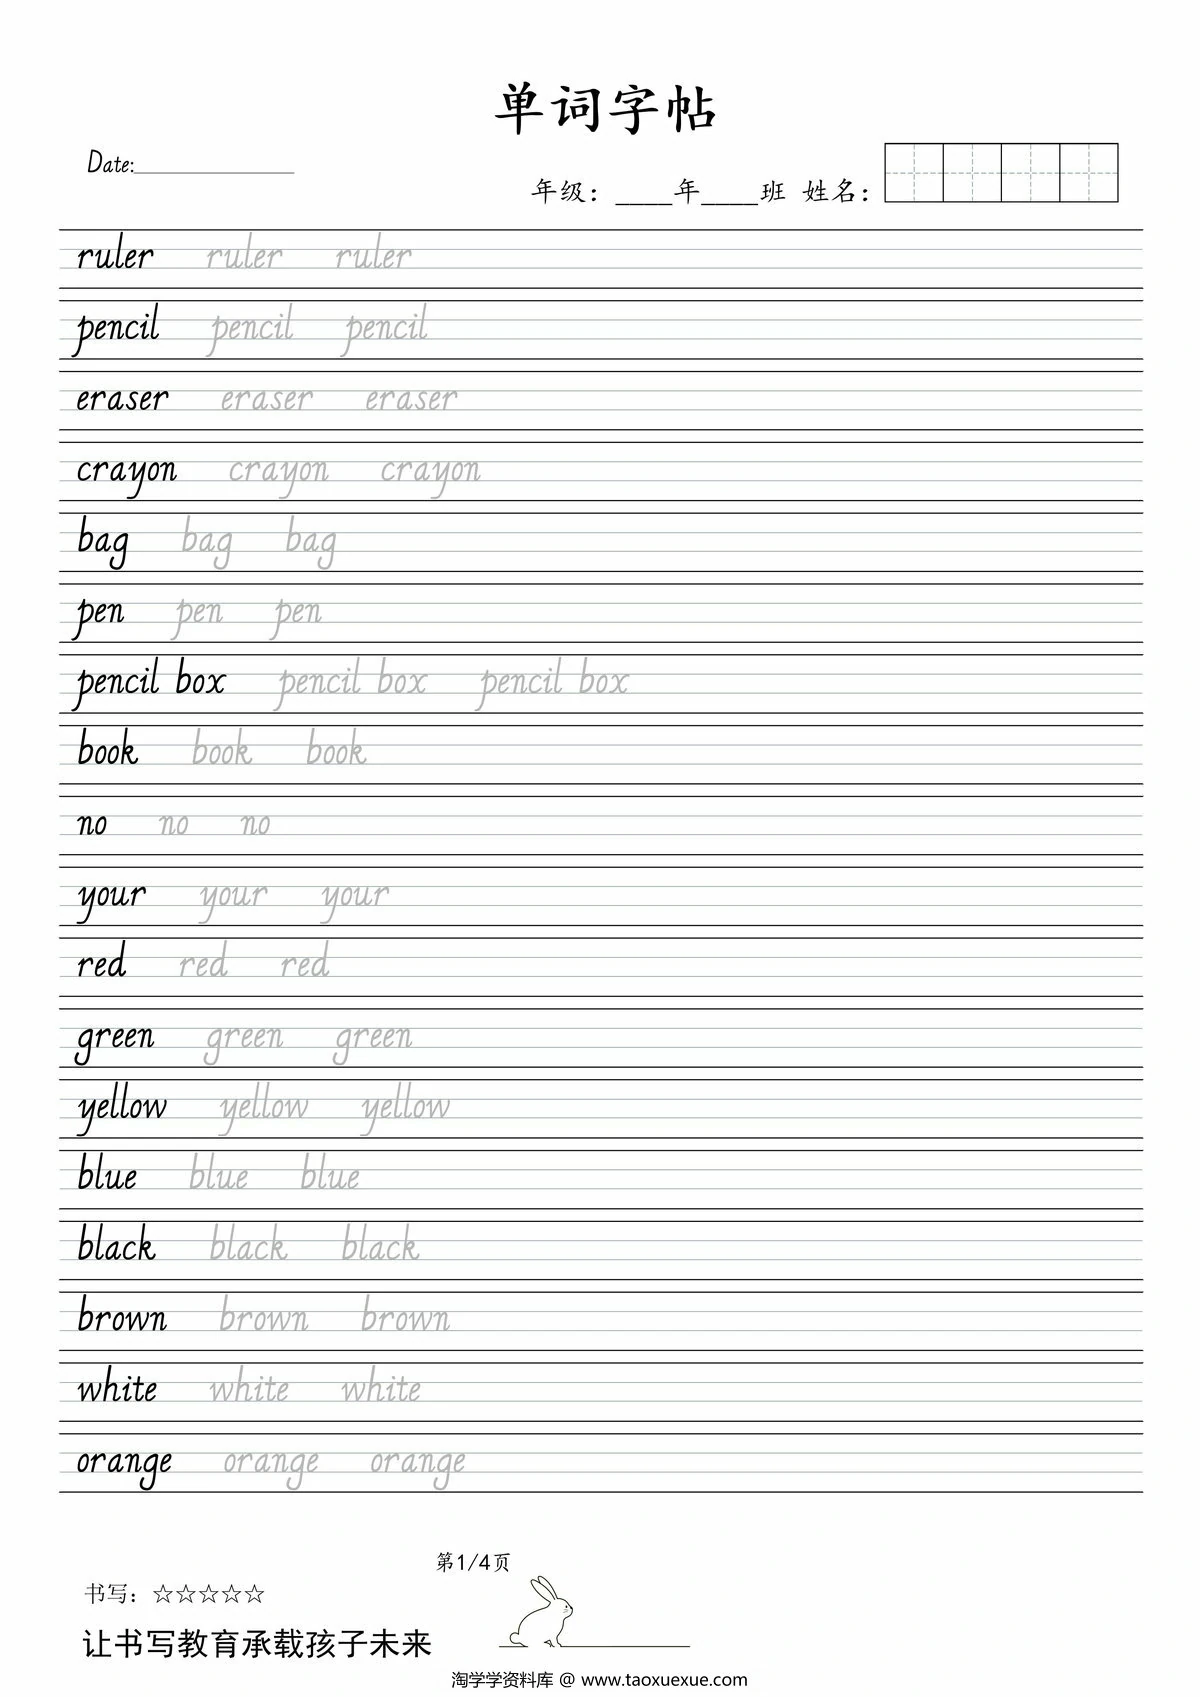 单词字帖
Date:
年级：____年____班 姓名：
ruler ruler ruler
pencil pencil pencil
eraser eraser eraser
crayon crayon crayon
bag bag bag
pen pen pen
pencil box pencil box pencil box
book book book
no no no
your your your
red red red
green green green
yellow yellow yellow
blue blue blue
black black black
brown brown brown
white white white
orange orange orange
第1/4页
书写：☆☆☆☆☆
让书写教育承载孩子未来
淘学学资料库 @ www.taoxuexue.com